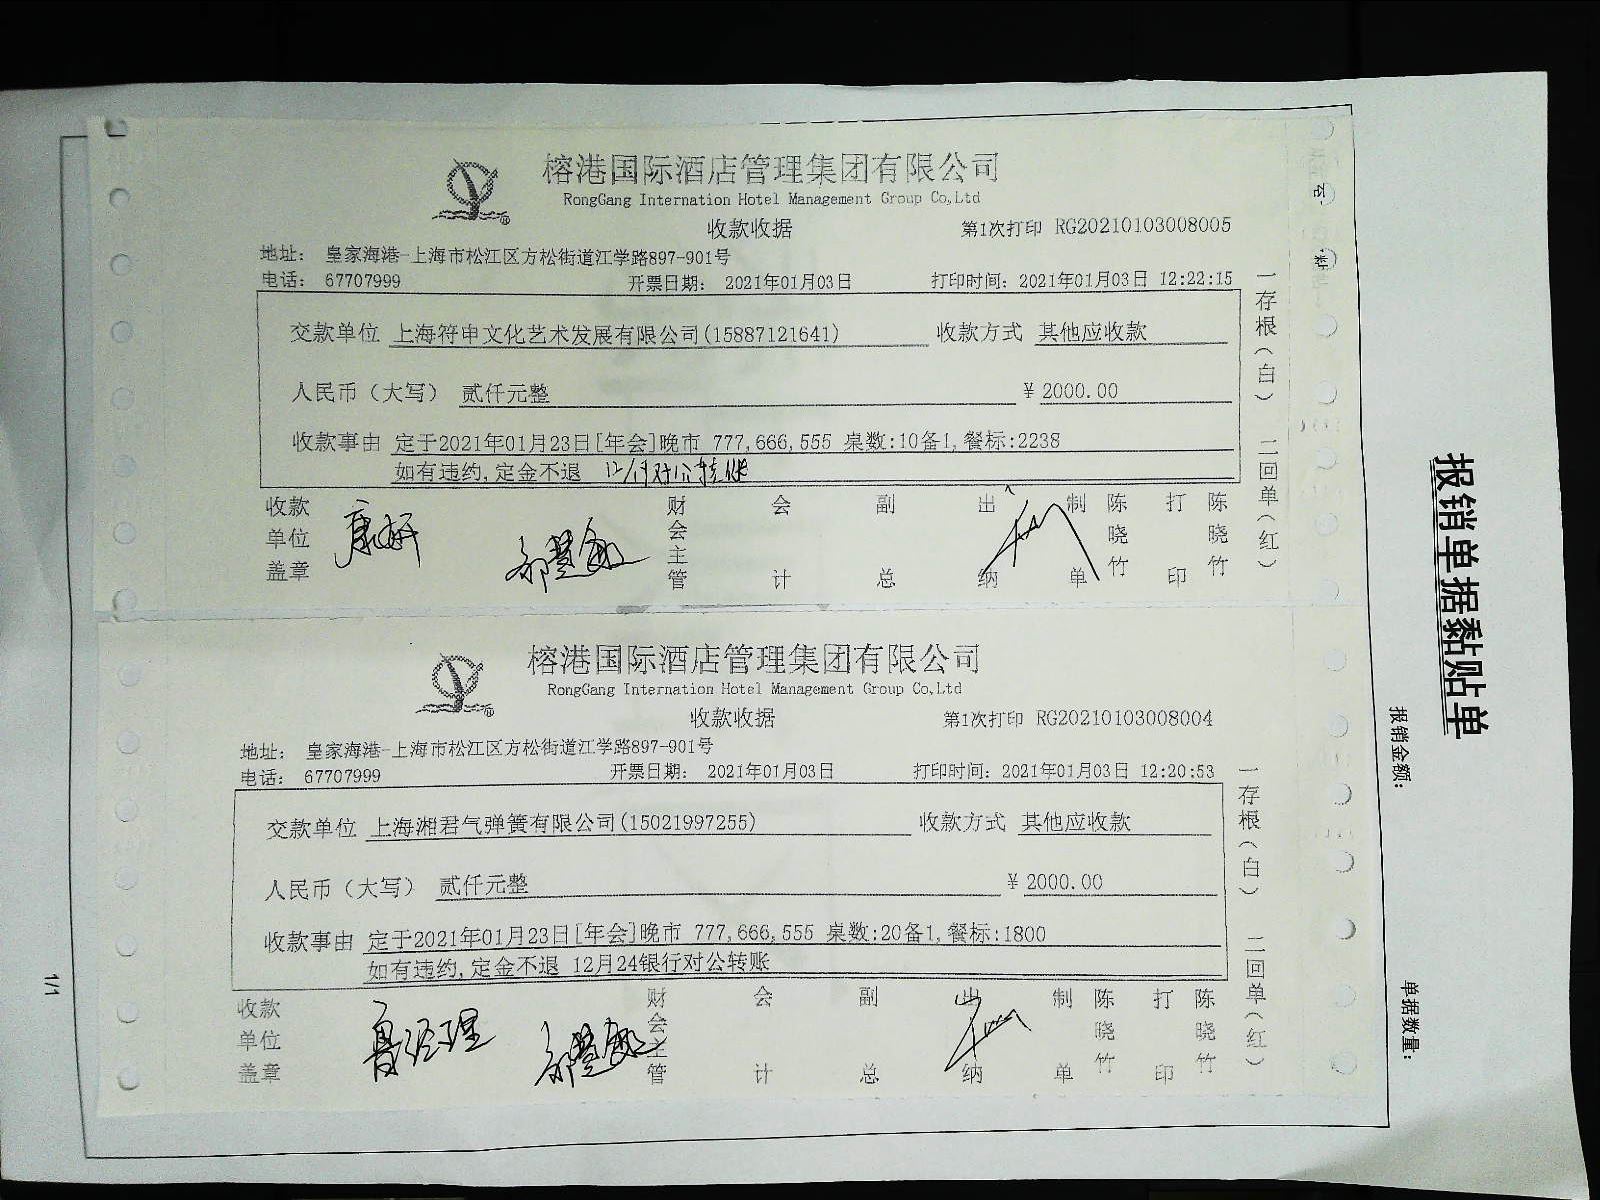 榕港国际酒店管理集团有限公司
RongGang Internation Hotel Management Group Co,Ltd
收款收据 第1次打印 RG20210103008005
地址： 皇家海港-上海市松江区方松街道江学路897-901号
电话： 67707999 开票日期： 2021年01月03日 打印时间：2021年01月03日 12:22:15
交款单位 上海符申文化艺术发展有限公司(15887121641) 收款方式 其他应收款
人民币（大写） 贰仟元整 ¥ 2000.00
收款事由 定于2021年01月23日[年会]晚市 777,666,555 桌数:10备1,餐标:2238
如有违约,定金不退 对公转账
收款单位盖章 康妍 财会主管 会计 副总 出纳 制单 陈晓竹 打印 陈晓竹
一存根（白） 二回单（红）
榕港国际酒店管理集团有限公司
RongGang Internation Hotel Management Group Co,Ltd
收款收据 第1次打印 RG20210103008004
地址： 皇家海港-上海市松江区方松街道江学路897-901号
电话： 67707999 开票日期： 2021年01月03日 打印时间：2021年01月03日 12:20:53
交款单位 上海湘君气弹簧有限公司(15021997255) 收款方式 其他应收款
人民币（大写） 贰仟元整 ¥ 2000.00
收款事由 定于2021年01月23日[年会]晚市 777,666,555 桌数:20备1,餐标:1800
如有违约,定金不退 12月24银行对公转账
收款单位盖章 鲁经理 财会主管 会计 副总 出纳 制单 陈晓竹 打印 陈晓竹
一存根（白） 二回单（红）
报销单据黏贴单
报销金额:
单据数量:
1/1